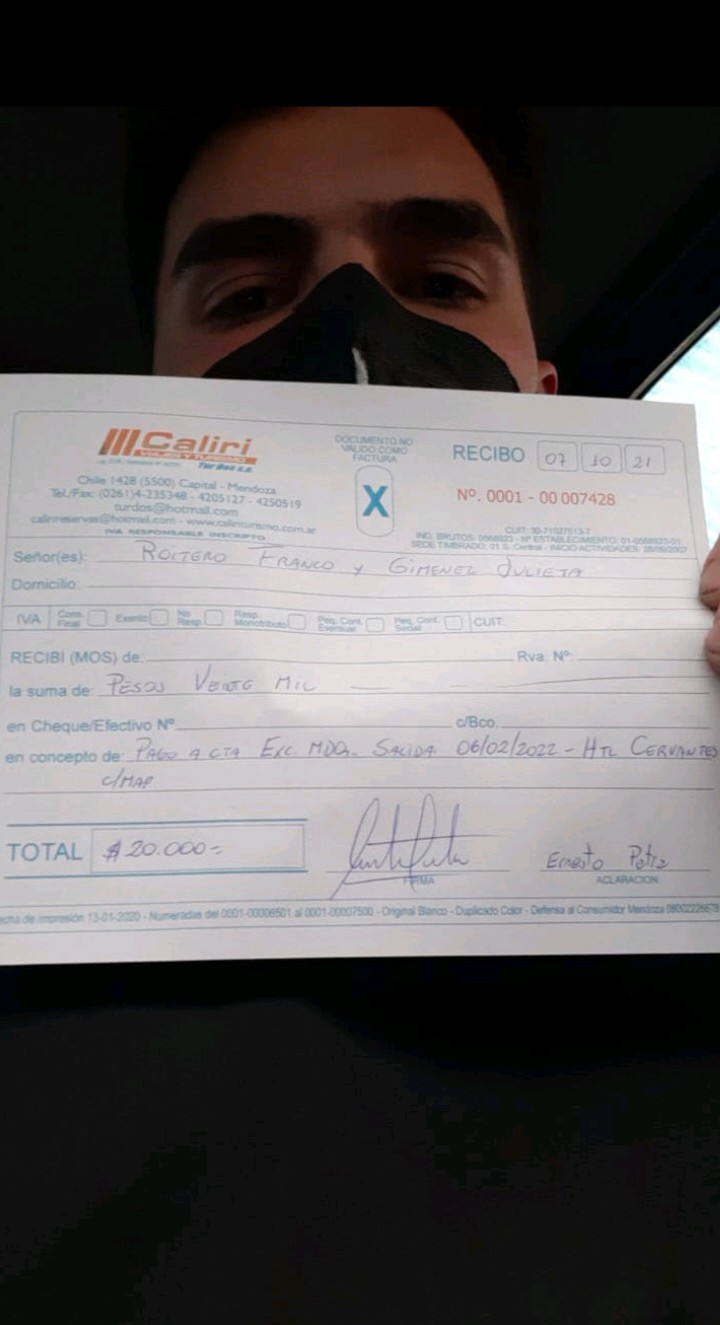 Caliri
VIAJES Y TURISMO
Tur Dos s.a.
Chile 1428 (5500) Capital - Mendoza
Tel./Fax: (0261)4-235348 - 4205127 - 4250519
turdos@hotmail.com
calirireservas@hotmail.com - www.caliriturismo.com.ar
IVA RESPONSABLE INSCRIPTO
DOCUMENTO NO
VALIDO COMO
FACTURA
X
RECIBO 07 10 21
Nº. 0001 - 00007428
CUIT: 30-71027513-7
ING. BRUTOS: 0568923 - Nº ESTABLECIMIENTO: 01-0568923-01
SEDE TIMBRADO: 01 S. Central - INICIO ACTIVIDADES:
Señor(es): ROITERO FRANCO y GIMENEZ JULIETA
Domicilio:
IVA Cons. Final Exento No Resp. Resp. Monotributo Peq. Cont. Eventual Peq. Cont. Social CUIT:
RECIBI (MOS) de: Rva. Nº:
la suma de: PESOS VEINTE MIL
en Cheque/Efectivo Nº c/Bco.
en concepto de: PAGO A CTA EXC. MDQ. SALIDA 06/02/2022 - HTL CERVANTES
C/MAP
TOTAL $20.000=
FIRMA
Ernesto Petra
ACLARACION
echa de impresión 13-01-2020 - Numeradas del 0001-00006501 al 0001-00007500 - Original Blanco - Duplicado Color - Defensa al Consumidor Mendoza 08002226678